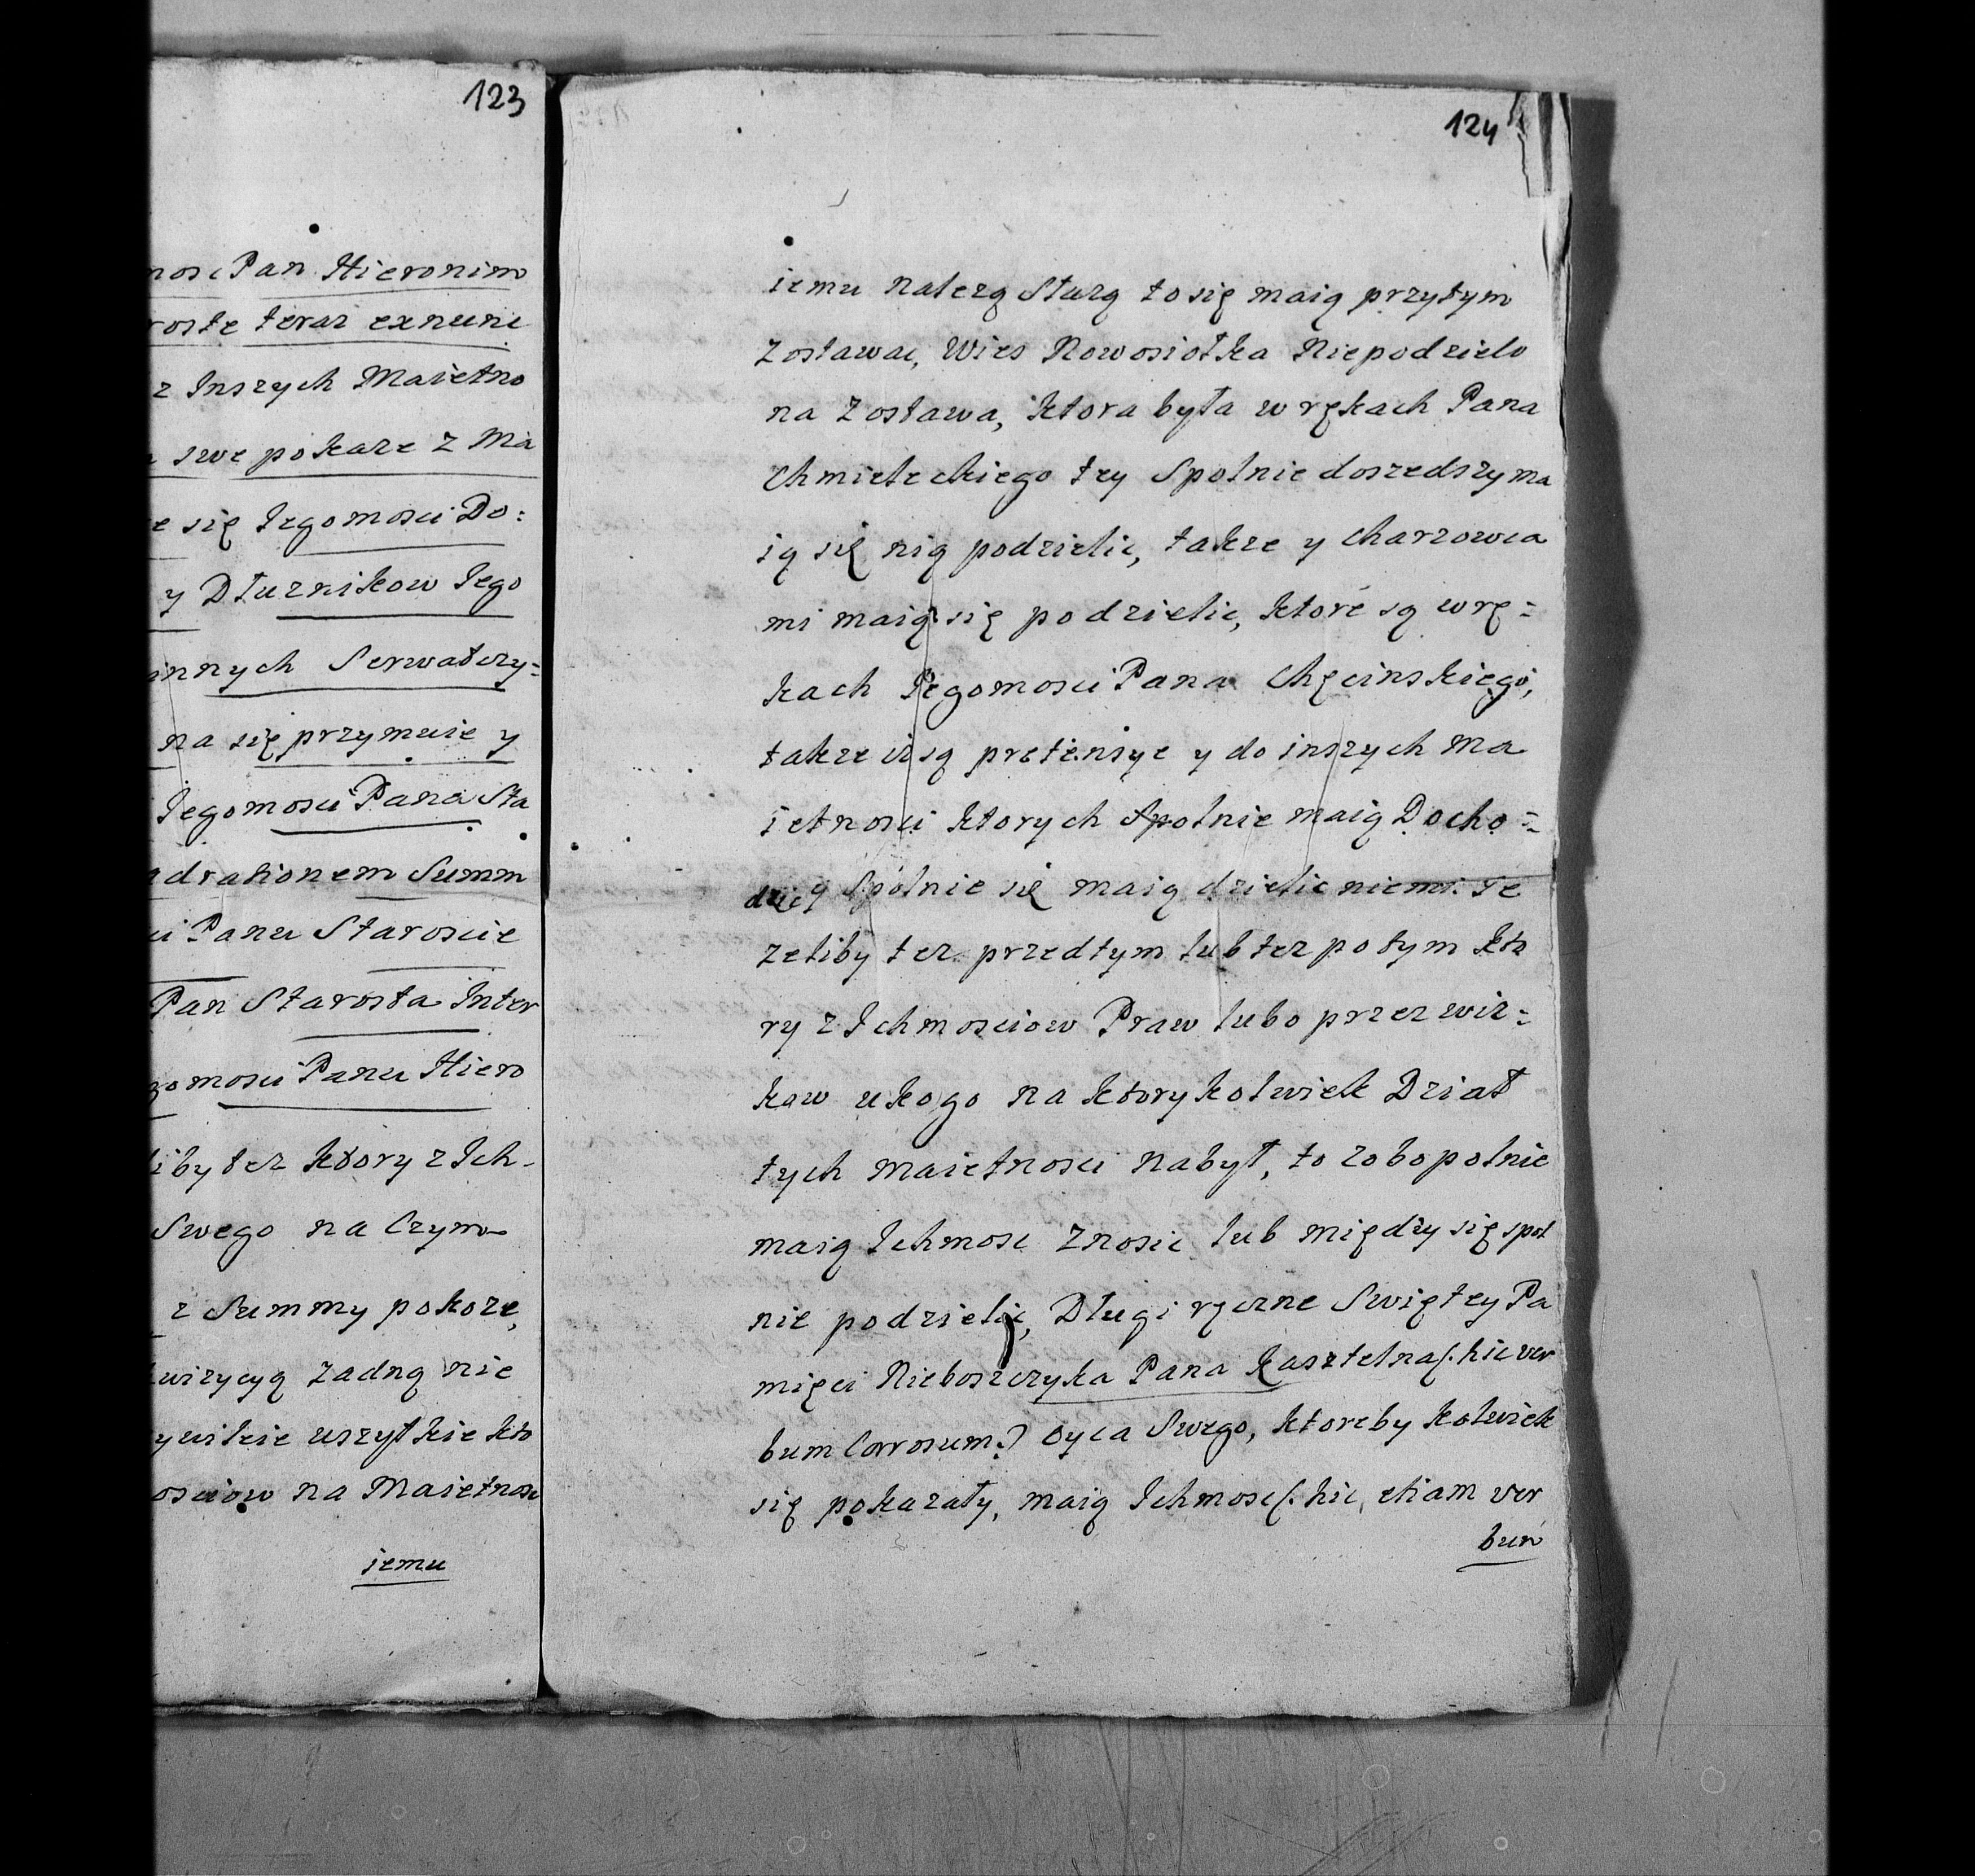 123
nosc Pan Hieronim
roste teraz exnunc
z Inszych Maietno
swe pokaze z Ma
e się Jegomosci Do:
y Dłuznikow Jego
innych Serwatczy=
na się przymuie y
Jegomosci Pana Sta
adrationem Summ
i Panu Staroscie
Pan Starosta Inter
gomosci Panu Hiero
iby tez ktory z Ich-
Swego na Czym
z Summy pokoze,
wizycyą zadną nie
ywilcie uszytkie kto
osciow na Maietnosc
iemu
124
iemu nalezą Słuzą to się maią przytym
zostawac, Wies Nowosiołka Niepodzielo
na zostawa, ktora była w rękach Pana
Chmieleckiego tey Spolnie doszedszy ma
ią się nią podzielic, takze y Charzowca
mi maią się podzielic, ktore są w rę=
kach Jegomosci Pana Chęcinskiego,
takze iz są pretensye y do inszych Ma
ietnosci ktorych Spolnie maią Docho=
dzic y Spolnie się maią dzielic niemi. Je
zeliby tez przedtym lub tez potym kto
ry z Ichmosciow Praw lubo przezwis=
kow u kogo na ktorykolwiek Dział
tych Maietnosci Nabył, to zobopolnie
maią Ichmosc Znosic lub między się spol
nie podzielic, Długi ręczne Swiętey Pa
mięci Nieboszczyka Pana Kasztelna(: hic ver
bum Corrosum:) Oyca Swego, ktoreby kolwiek
się pokazały, maią Ichmosc(: hic, etiam ver
bum